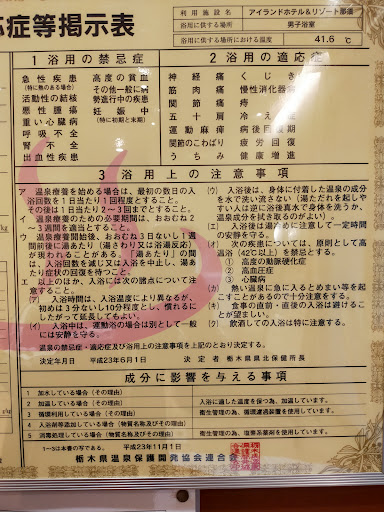 応症等掲示表
利用施設名 アイランドホテル＆リゾート那須
浴用に供する場所 男子浴室
浴用に供する場所における温度 41.6 ℃
1 浴用の禁忌症
急性疾患
(特に熱のある場合)
活動性の結核
悪性腫瘍
重い心臓病
呼吸不全
腎不全
出血性疾患
高度の貧血
その他一般に病
勢進行中の疾患
妊娠中
(特に初期と末期)
2 浴用の適応症
神経痛 くじき
筋肉痛 慢性消化器病
関節痛 痔
五十肩 冷え症
運動麻痺 病後回復期
関節のこわばり 疲労回復
うちみ 健康増進
3 浴用上の注意事項
ア 温泉療養を始める場合は、最初の数日の入
浴回数を1日当たり1回程度とすること。
その後は1日当たり2～3回までとすること。
イ 温泉療養のための必要期間は、おおむね2
～3週間を適当とすること。
ウ 温泉療養開始後、おおむね3日ないし1週
間前後に湯あたり（湯さわり又は浴湯反応）
が現われることがある。「湯あたり」の間
は、入浴回数を減じ又は入浴を中止し、湯あ
たり症状の回復を待つこと。
エ 以上のほか、入浴には次の諸点について注
意すること。
(ア) 入浴時間は、入浴温度により異なるが、
初めは3分ないし10分程度とし、慣れるに
したがって延長してもよい。
(イ) 入浴中は、運動浴の場合は別として一般
には安静を守る。
(ウ) 入浴後は、身体に付着した温泉の成分
を水で洗い流さない（湯ただれを起しや
すい人は逆に浴後真水で身体を洗うか、
温泉成分を拭き取るのがよい）。
(エ) 入浴後は湯冷めに注意して一定時間
の安静を守る。
(オ) 次の疾患については、原則として高
温浴（42℃以上）を禁忌とする。
① 高度の動脈硬化症
② 高血圧症
③ 心臓病
(カ) 熱い温泉に急に入るとめまい等を起
こすことがあるので十分注意をする。
(キ) 食事の直前・直後の入浴は避けるこ
とが望ましい。
(ク) 飲酒しての入浴は特に注意する。
温泉の禁忌症・適応症及び浴用上の注意事項を上記のとおり決定する。
決定年月日 平成23年6月1日 決定者 栃木県県北保健所長
成分に影響を与える事項
1 加水している場合（その理由）
2 加温している場合（その理由） 入浴に適した温度を保つ為、加温しています。
3 循環利用している場合（その理由） 衛生管理の為、循環濾過装置を使用しています。
4 入浴剤等添加している場合（物質名称及びその理由）
5 消毒処理している場合（物質名称及びその理由） 衛生管理の為、塩素系薬剤を使用しています。
1～3は本書の写である。 平成23年11月1日
栃木県温泉保護開発協会連合会